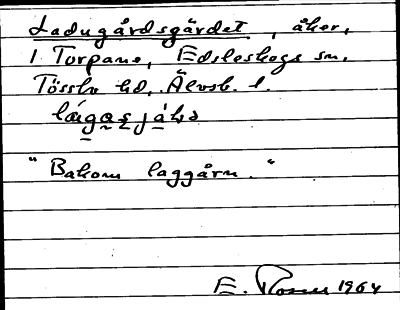 Ladugårdsgärdet, åker,
1 Torpane, Edsleskogs sn.
Tössbo hd, Älvsb. l.
"Bakom laggårn."
E. Rosell 1964